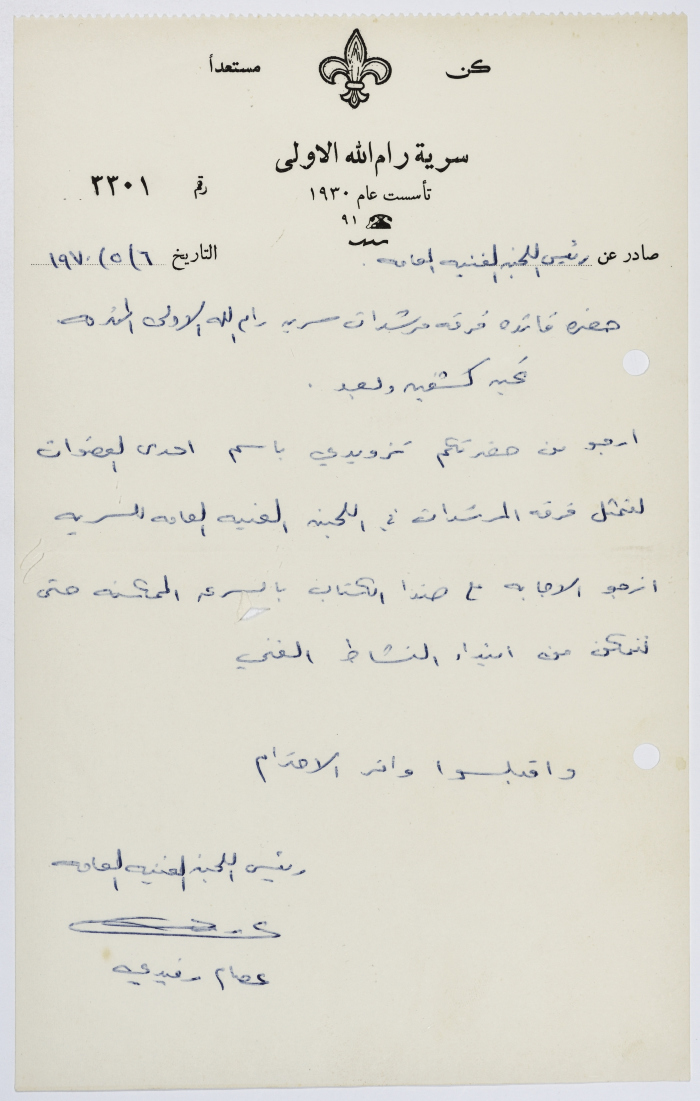 كن مستعداً
سرية رام الله الاولى
تأسست عام ١٩٣٠
رقم ٣٣٠١
٩١
صادر عن رئيس اللجنه الفنيه العامه
التاريخ ٦/٥/١٩٧٠
حضرة قائده فرقه مرشدات سريه رام الله الاولى المحترمه
تحيه كشفيه وبعد .
ارجو من حضرتكم تزويدي باسم احدى العضوات
لتمثل فرقه المرشدات في اللجنه الفنيه العامه للسريه
ارجو الاجابه على هذا الكتاب بالسرعه الممكنه حتى
نتمكن من ابتداء النشاط الفني
واقبلوا وافر الاحترام
رئيس اللجنه الفنيه العامه
عصام رفيدي